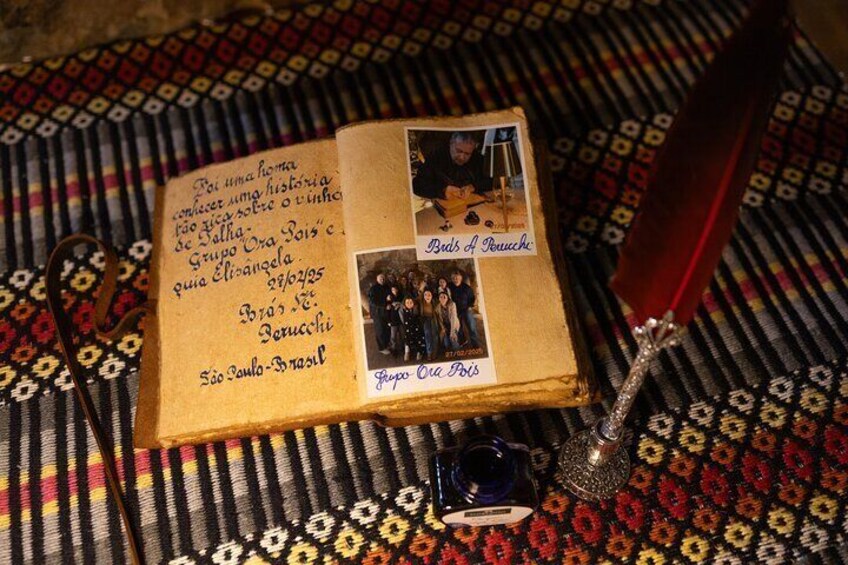 Foi uma honra
conhecer uma história
tão rica sobre o vinho
de Talha.
Grupo "Ora Pois" e
guia Elisângela.
27/02/25
Brás A.
Perucchi
São Paulo-Brasil
Brás A Perucchi
27/02/2025
Grupo Ora Pois